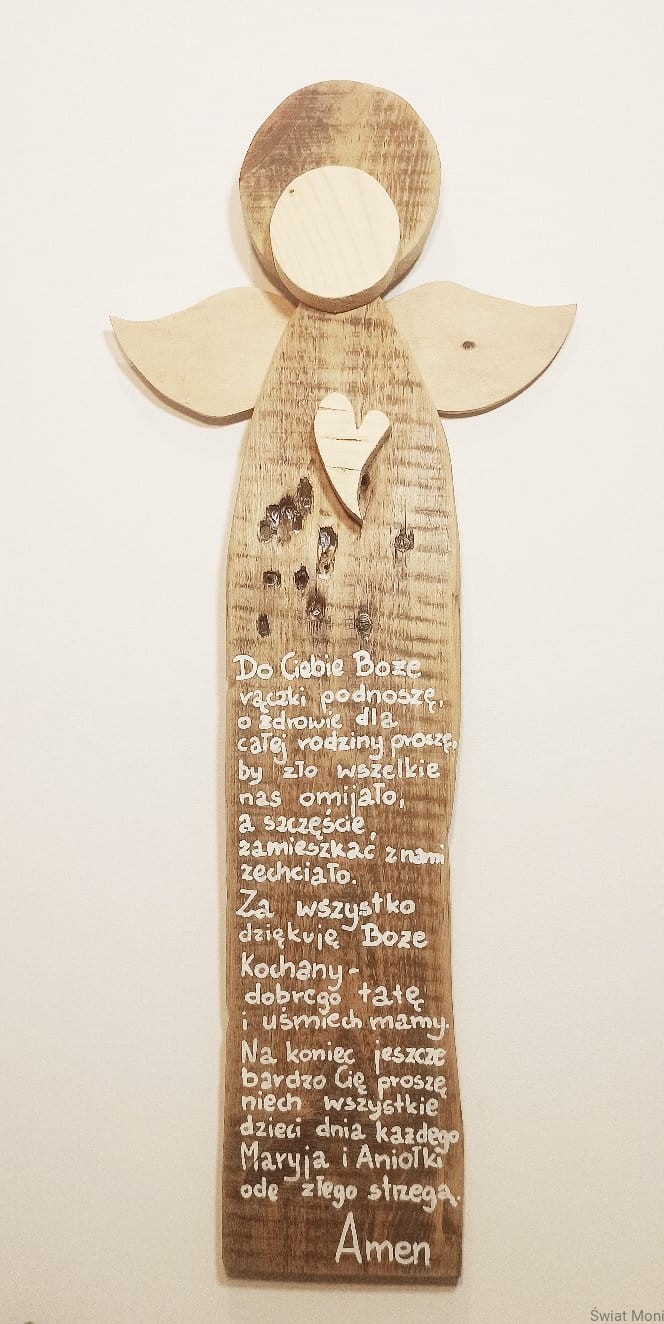 Do Ciebie Boże
rączki podnoszę,
o zdrowie dla
całej rodziny proszę,
by zło wszelkie
nas omijało,
a szczęście
zamieszkać z nami
zechciało.
Za wszystko
dziękuję Boże
Kochany -
dobrego tatę
i uśmiech mamy.
Na koniec jeszcze
bardzo Cię proszę
niech wszystkie
dzieci dnia każdego
Maryja i Aniołki
ode złego strzegą.
Amen
Świat Moni